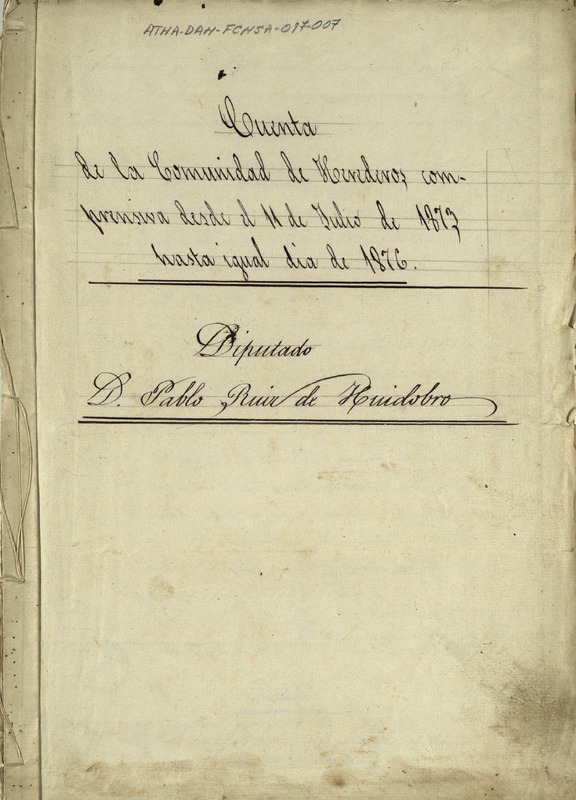 ATHA-DAH-FCHSA-017-007
Cuenta
de la Comunidad de Herederos com-
prensiva desde el 11 de Julio de 1873
hasta igual dia de 1876.
Diputado
D. Pablo Ruiz de Huidobro